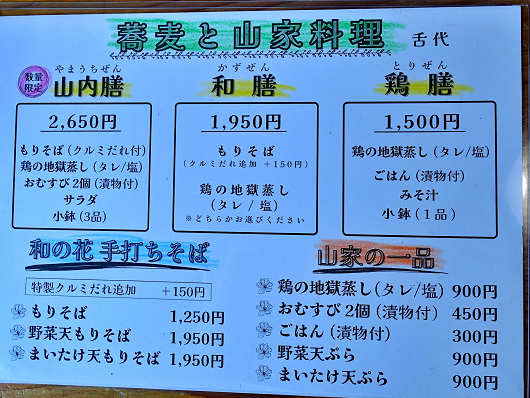 蕎麦と山家料理 舌代
数量限定
やまうちぜん
山内膳
2,650円
もりそば(クルミだれ付)
鶏の地獄蒸し(タレ/塩)
おむすび2個(漬物付)
サラダ
小鉢(3品)
かずぜん
和膳
1,950円
もりそば
(クルミだれ追加 +150円)
鶏の地獄蒸し
(タレ/塩)
※どちらかお選びください
とりぜん
鶏膳
1,500円
鶏の地獄蒸し(タレ/塩)
ごはん(漬物付)
みそ汁
小鉢(1品)
和の花 手打ちそば
特製クルミだれ追加 +150円
もりそば 1,250円
野菜天もりそば 1,950円
まいたけ天もりそば 1,950円
山家の一品
鶏の地獄蒸し(タレ/塩) 900円
おむすび2個(漬物付) 450円
ごはん(漬物付) 300円
野菜天ぷら 900円
まいたけ天ぷら 900円